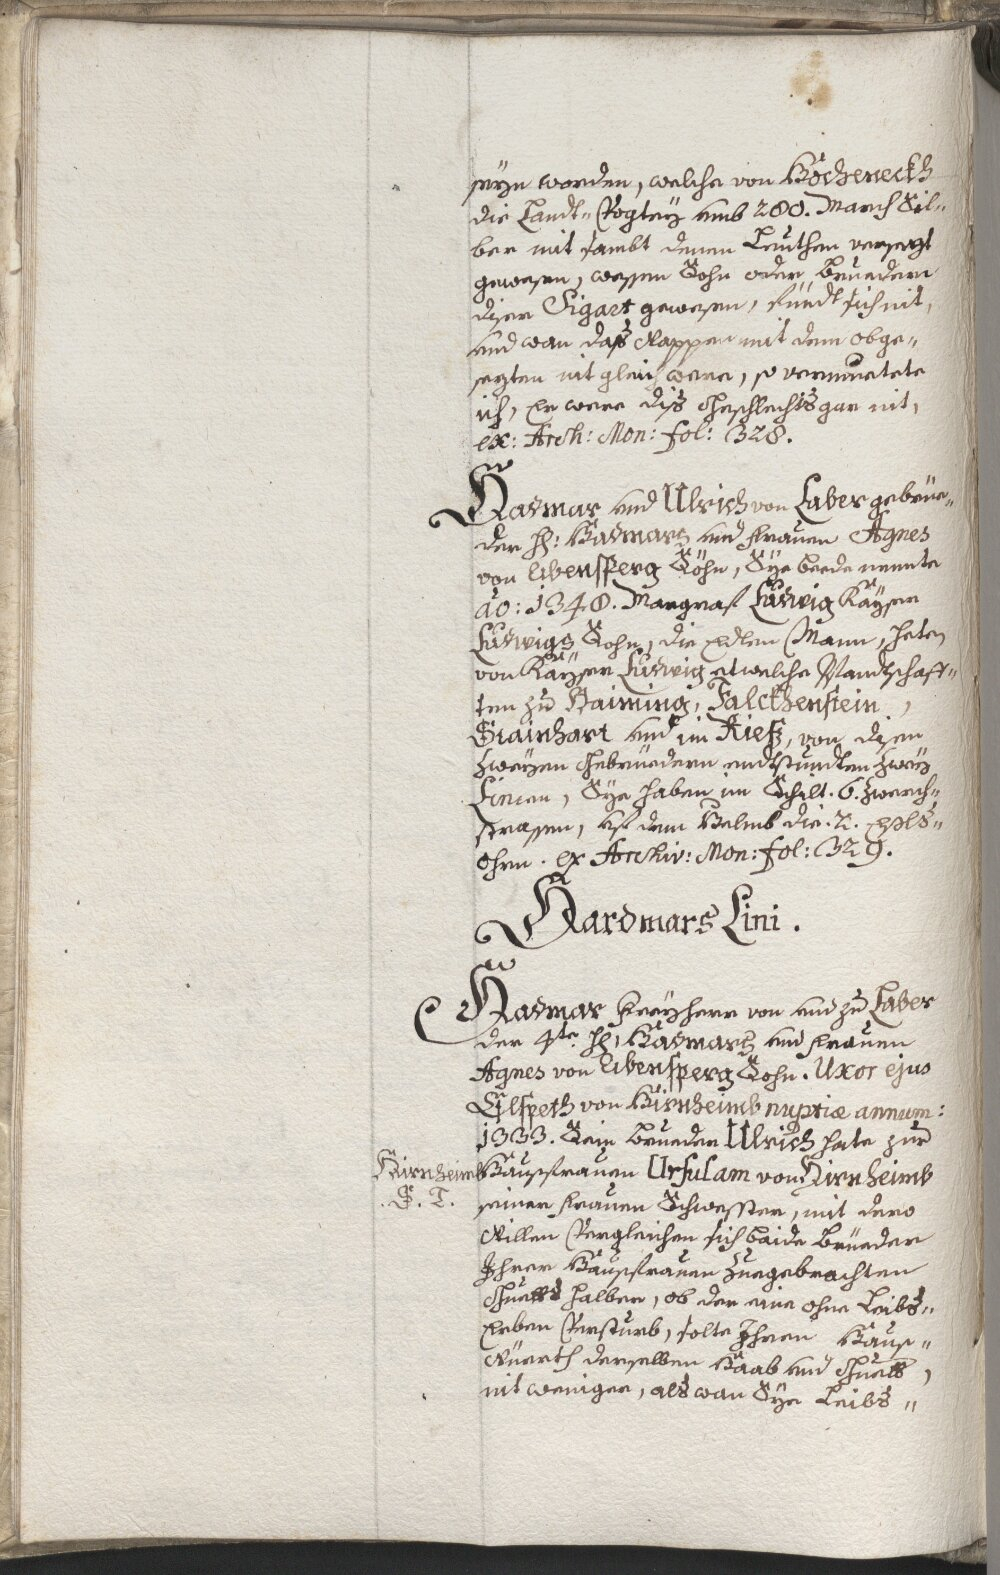 seyn worden, welche von Hocheneckh
die Landt-Vogtey umb 280. March Sil-
ber mit sambt denen Leuthen versezt
gewesen, wessen Sohn oder Brueder
diser Sigart gewesen, findt sich nit,
und wan das Wappen mit dem obge-
sezten nit gleich were, so vermuetete
ich, Er were diss Geschlechts gar nit,
ex: Arch: Mon: fol: 328.
Hadmar und Ulrich von Laber gebrüe-
der H: Hadmars und Frauen Agnes
von Abensperg Söhn, Sye beede nennte
ao: 1348. Margraf Ludwig Kayser
Ludwigs Sohn, die Edlen Mann, haten
von Kayser Ludwig etwelche Pfandtschaff-
ten zu Haiming, Falckhenstein,
Stainhart und im Riess, von disen
zweyen Gebrüedern entstundten zwey
Linien, Sye haben im Schilt. 6. zwerch-
strassen, uf dem Helmb die. 2. Esls-
ohrn. ex Archiv: Mon: fol: 329.
Hardmars Lini.
Hadmar Freyherr von und zu Laber
der 4te H: Hadmars und Frauen
Agnes von Abensperg Sohn. Uxor ejus
Elspeth von Hirnheimb nuptiæ annum:
1333. Sein Brueder Ulrich hate zur
Hausfrauen Ursulam von Hirnheimb
Hirnheimb
S. T.
seiner Frauen Schwester, mit dero
Willen Vergleichen sich baide Brüeder
Ihrer Hausfrauen zuegebrachten
Guetts halber, ob der eine ohne Leibs-
Erben Versturb, solte Ihren Haus-
Würth derselben Haab und Guett,
nit weniger, als wan Sye Leibs-